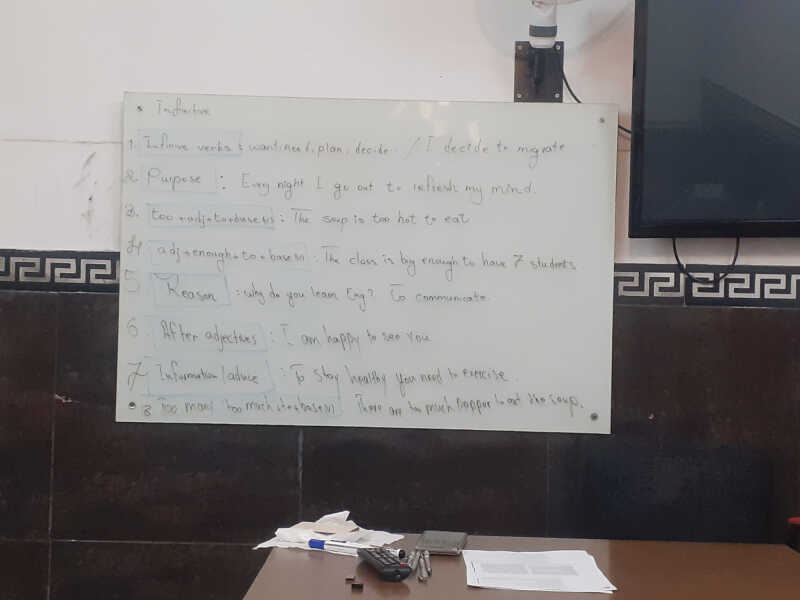 Infinitive
1. Infinive verbs : want, need, plan, decide. / I decide to migrate
2. Purpose : Every night I go out to refresh my mind.
3. too + adj + to + base(v) : The soup is too hot to eat
4. adj + enough + to + base(v) : The class is big enough to have 7 students
5 Reason : why do you learn Eng? To communicate.
6 After adjectives : I am happy to see you
7 Information / advice : To stay healthy you need to exercise.
8 Too many / too much + to + base(v) There are too much to eat the soup.